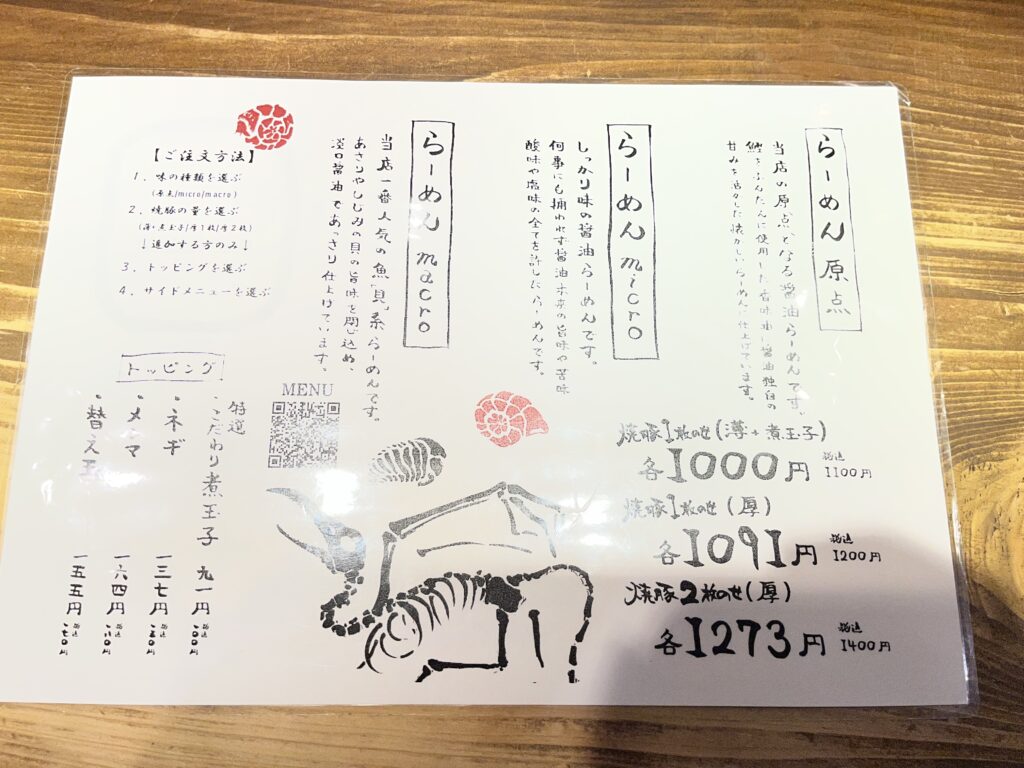 らーめん 原点
当店の原点となる醤油らーめんです。
鰹をふんだんに使用した香味油に醤油独自の
甘みを活かした懐かしいらーめんに仕上げています。
らーめん micro
しっかり味の醤油らーめんです。
何事にも捕われず醤油本来の旨味や苦味
酸味や塩味の全てを許したらーめんです。
らーめん macro
当店一番人気の魚「貝」系らーめんです。
あさりやしじみの貝の旨味を閉じ込め、
淡口醤油であっさり仕上げています。
【ご注文方法】
1. 味の種類を選ぶ
(原点/micro/macro)
2. 焼豚の量を選ぶ
(薄+煮玉子/厚1枚/厚2枚)
↓追加する方のみ↓
3. トッピングを選ぶ
4. サイドメニューを選ぶ
焼豚1枚のせ(薄+煮玉子)
各1000円 税込1100円
焼豚1枚のせ(厚)
各1091円 税込1200円
焼豚2枚のせ(厚)
各1273円 税込1400円
MENU
トッピング
・特選こだわり煮玉子 九一円 税込一〇〇円
・ネギ 一三七円 税込一五〇円
・メンマ 一六四円 税込一八〇円
・替え玉 一五五円 税込一七〇円